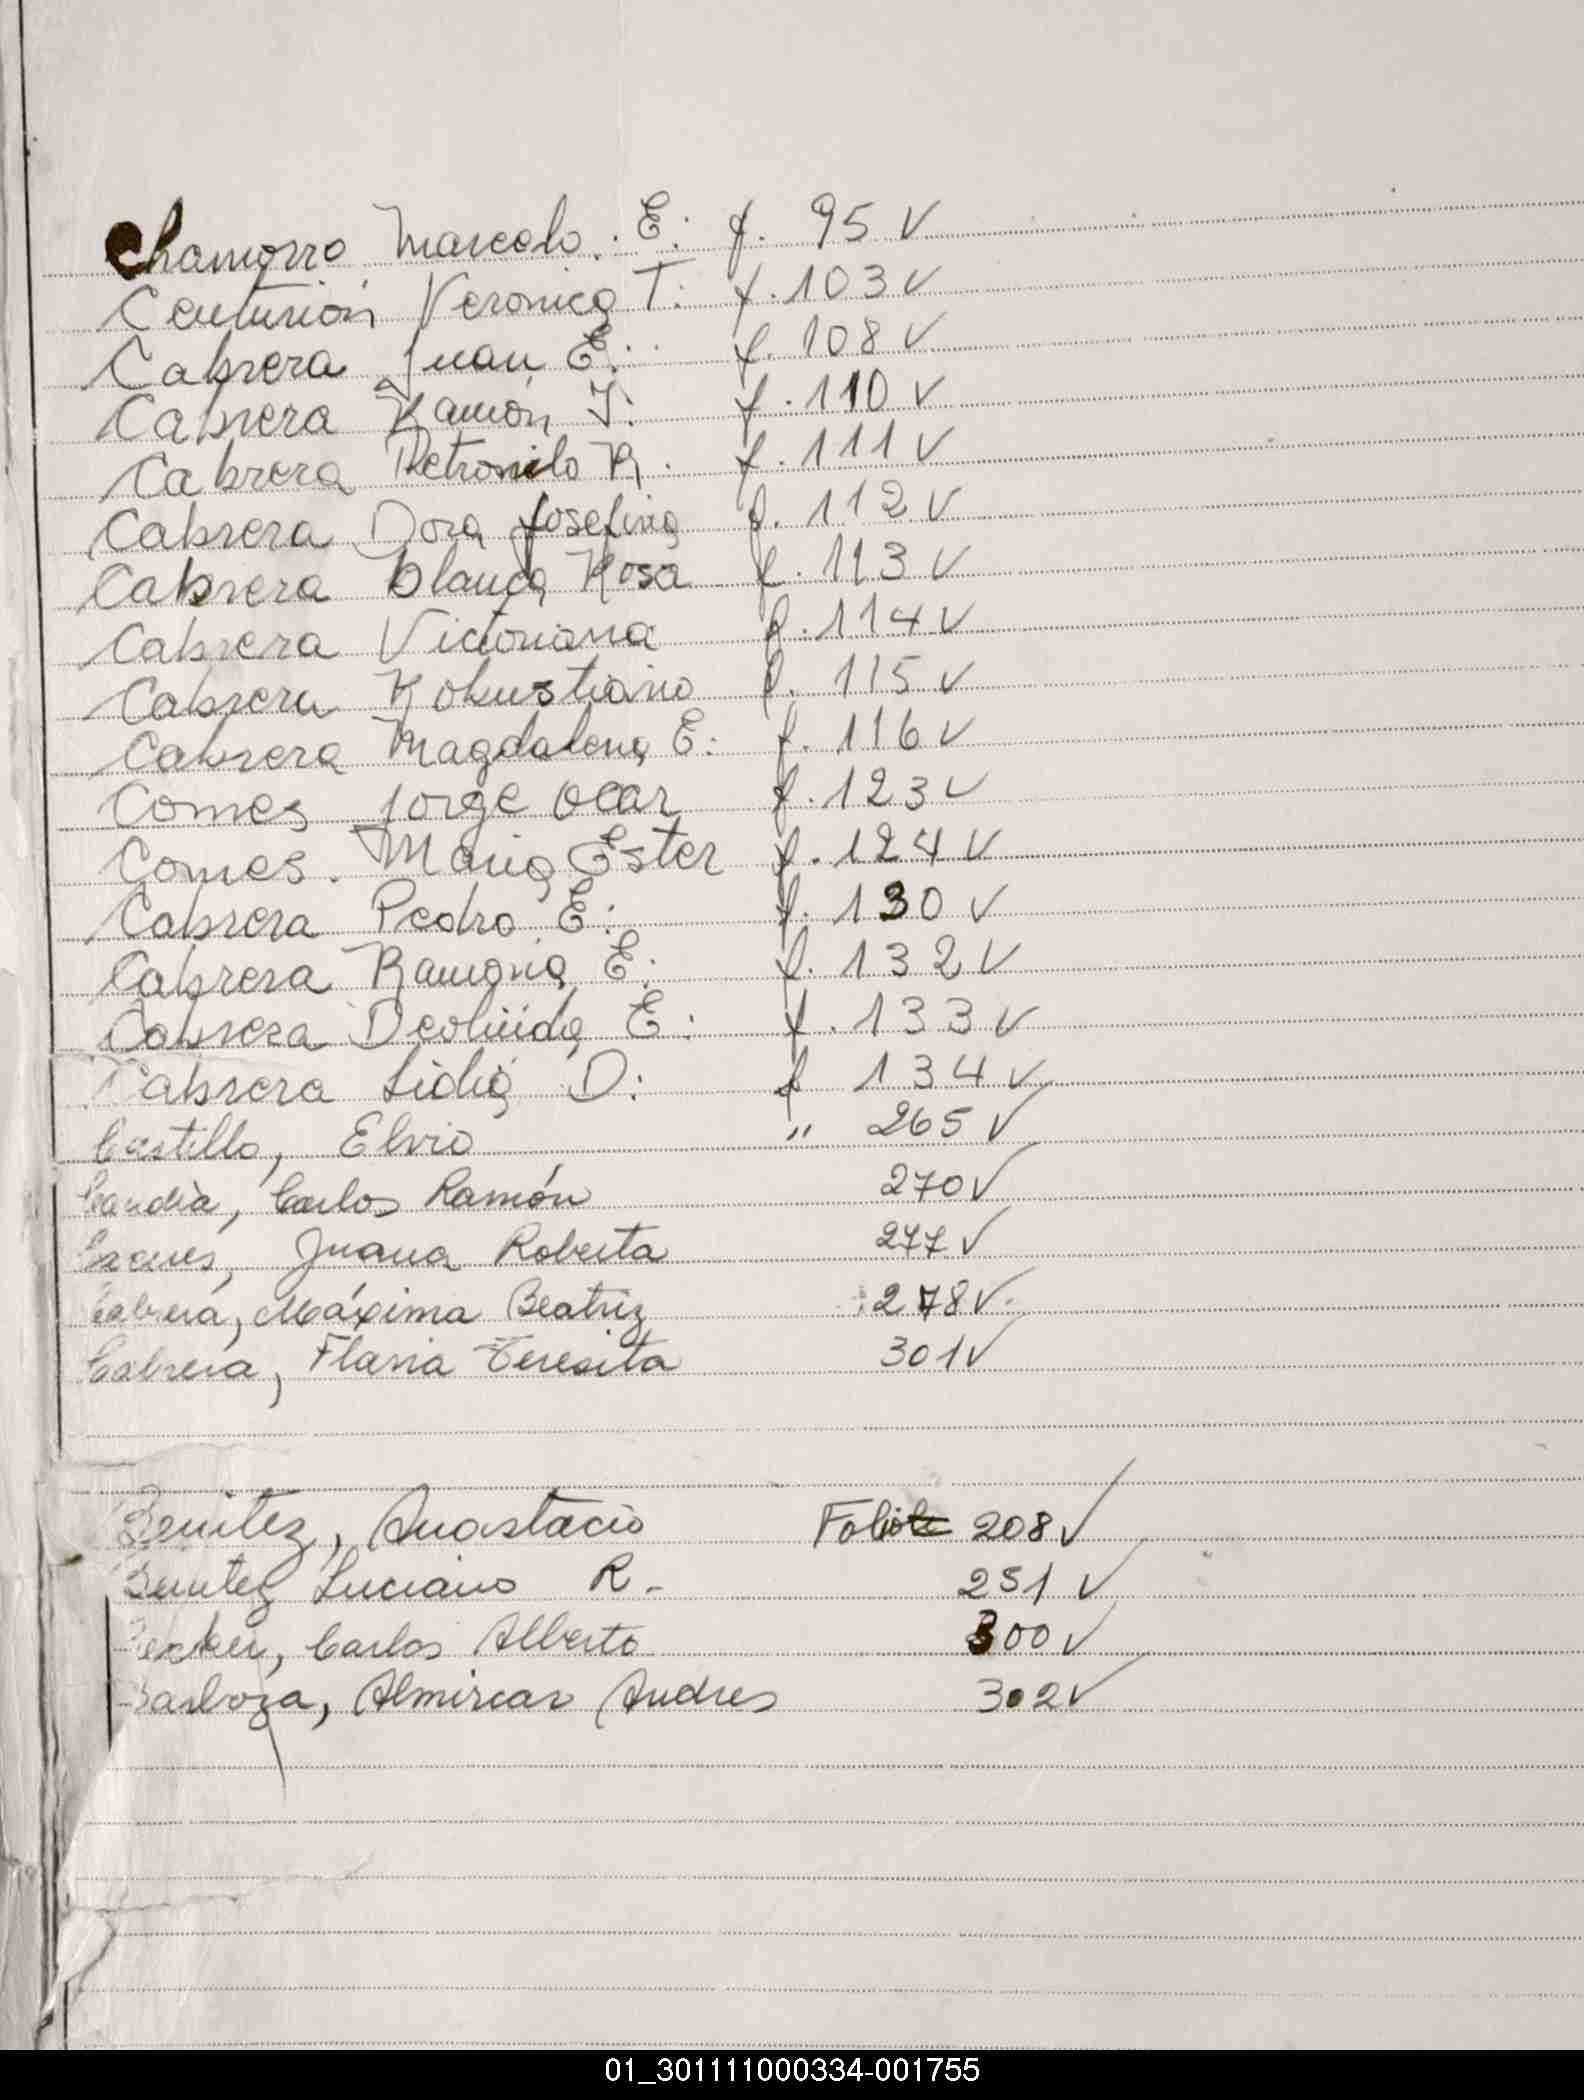 Chamorro Marcelo. E. f. 95 ✓
Centurión Veronica T. f. 103 ✓
Cabrera Juan E. f. 108 ✓
Cabrera Ramón I. f. 110 ✓
Cabrera Petronilo R. f. 111 ✓
Cabrera Dora Josefina f. 112 ✓
Cabrera Blanca Rosa f. 113 ✓
Cabrera Victoriana f. 114 ✓
Cabrera Robustiano f. 115 ✓
Cabrera Magdalena E. f. 116 ✓
Comes Jorge Ocar f. 123 ✓
Comes. Maria Ester f. 124 ✓
Cabrera Pedro E. f. 130 ✓
Cabrera Ramona E. f. 132 ✓
Cabrera Deolinda E. f. 133 ✓
Cabrera Lidia D. f 134 ✓
Castillo, Elvio " 265 ✓
Candia, Carlos Ramón 270 ✓
Juana Roberta 277 ✓
Cabrera, Máxima Beatriz 278 ✓
Cabrera, Flavia Teresita 301 ✓
Benitez, Anastacio Folio 208 ✓
Benitez Luciano R. 251 ✓
Becker, Carlos Alberto 300 ✓
Barboza, Almircar Andres 302 ✓
01_301111000334-001755